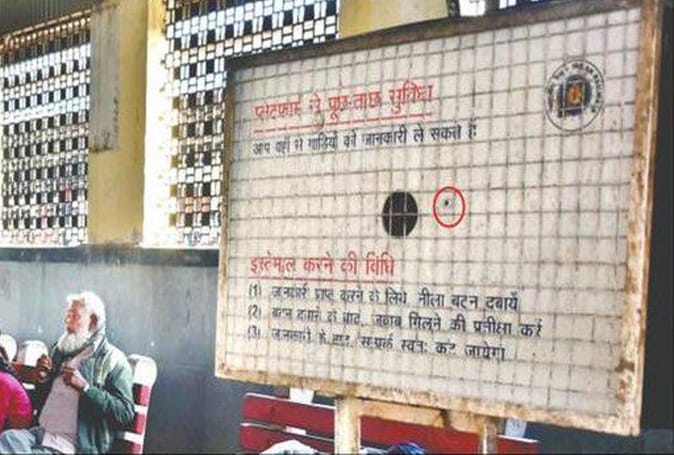 प्लेटफार्म से पूछ-ताछ सुविधा
आप यहाँ से गाडियों की जानकारी ले सकते हैं
इस्तेमाल करने की विधि
(1) जानकारी प्राप्त करने के लिये, नीला बटन दबायें
(2) बटन दबाने के बाद, जवाब मिलने की प्रतीक्षा करें
(3) जानकारी के बाद, सम्पर्क स्वत: कट जायेगा